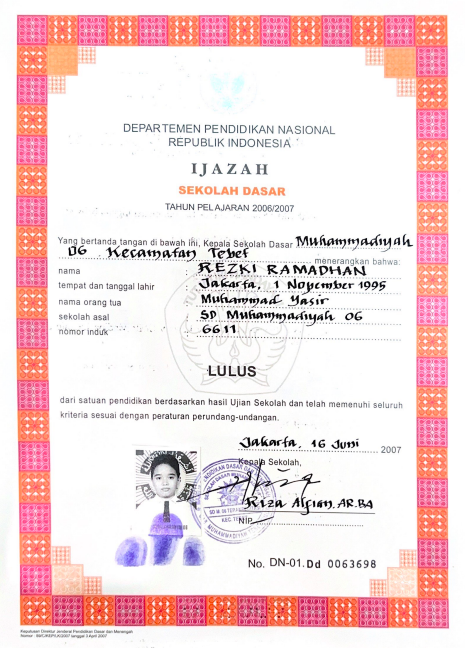 DEPARTEMEN PENDIDIKAN NASIONAL
REPUBLIK INDONESIA
IJAZAH
SEKOLAH DASAR
TAHUN PELAJARAN 2006/2007
Yang bertanda tangan di bawah ini, Kepala Sekolah Dasar Muhammadiyah
06 Kecamatan Tebet menerangkan bahwa:
nama REZKI RAMADHAN
tempat dan tanggal lahir Jakarta, 1 Nopember 1995
nama orang tua Muhammad Yasir
sekolah asal SD Muhammadiyah 06
nomor induk 6611
LULUS
dari satuan pendidikan berdasarkan hasil Ujian Sekolah dan telah memenuhi seluruh
kriteria sesuai dengan peraturan perundang-undangan.
Jakarta, 16 Juni 2007
Kepala Sekolah,
Riza Alfian, AR.BA
NIP.
No. DN-01.Dd 0063698
Keputusan Direktur Jenderal Pendidikan Dasar dan Menengah
tanggal 3 April 2007